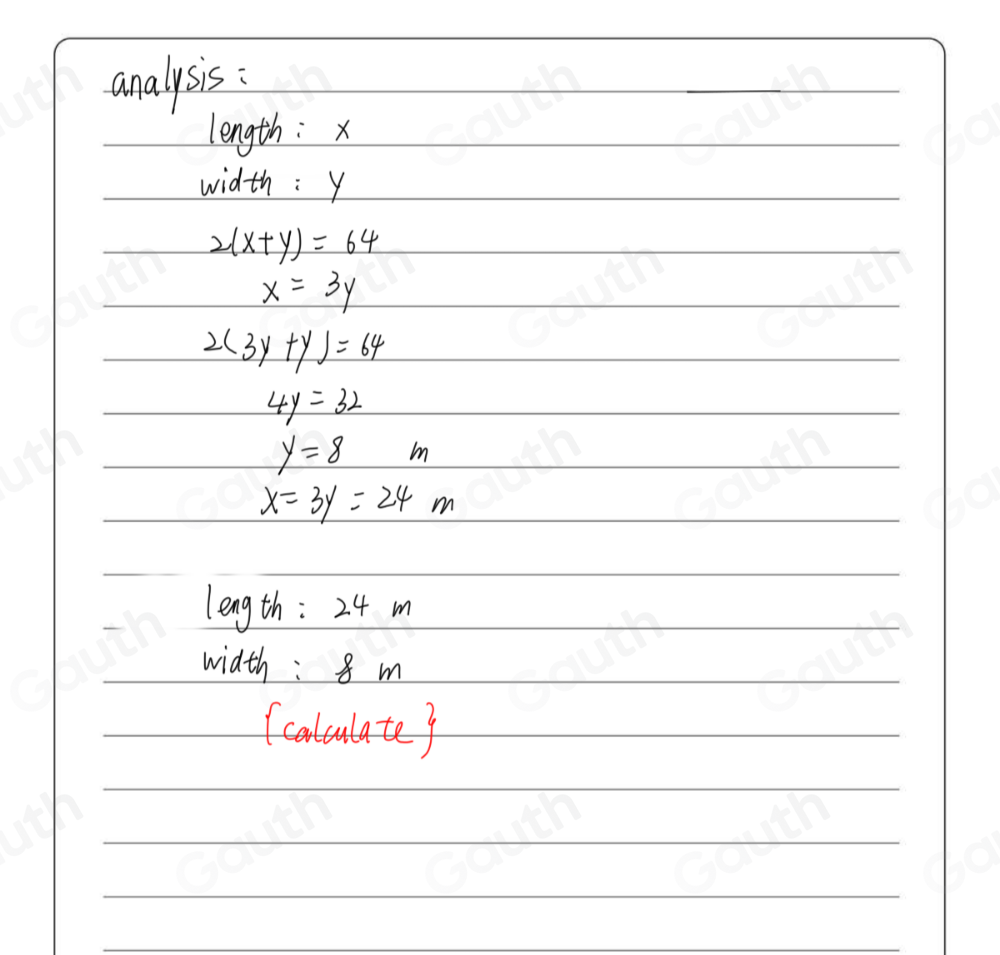 analysis:
length: x
width: y
2(x+y)=64
x=3y
2(3y+y)=64
4y=32
y=8 m
x=3y=24 m
length: 24 m
width: 8 m
{calculate}